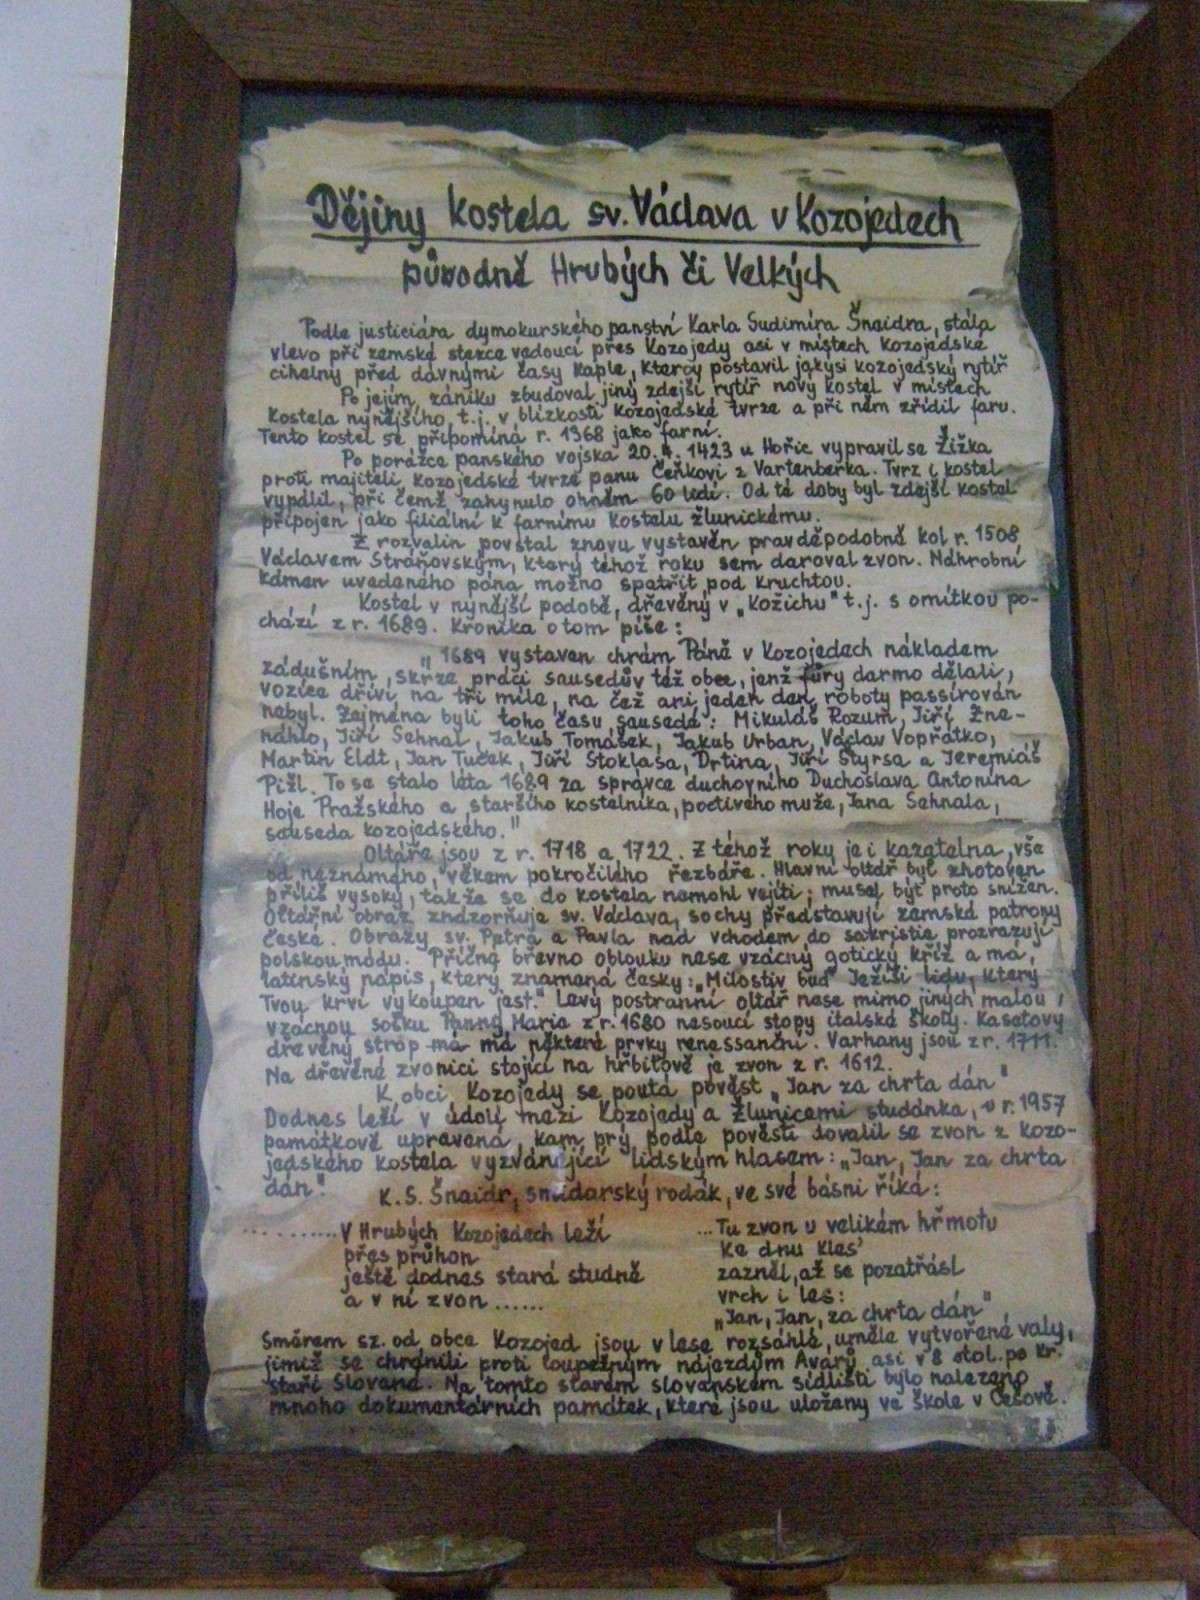 Dějiny kostela sv. Václava v Kozojedech
původně Hrubých či Velkých
Podle justiciára dymokurského panství Karla Sudimíra Šnaidra, stála
vlevo při zemské stezce vedoucí přes Kozojedy asi v místech kozojedské
cihelny před dávnými časy kaple, kterou postavil jakýsi kozojedský rytíř
Po jejím zániku zbudoval jiný zdejší rytíř nový kostel v místech
kostela nynějšího, t.j. v blízkosti kozojedské tvrze a při něm zřídil faru.
Tento kostel se připomíná r. 1368 jako farní.
Po porážce panského vojska 20.4.1423 u Hořic vypravil se Žižka
proti majiteli kozojedské tvrze panu Čeňkovi z Vartenberka. Tvrz i kostel
vypálil, při čemž zahynulo ohněm 60 lidí. Od té doby byl zdejší kostel
připojen jako filiální k farnímu kostelu žlunickému.
Z rozvalin povstal znovu vystavěn pravděpodobně kol r. 1508
Václavem Straňovským, který téhož roku sem daroval zvon. Náhrobní
kámen uvedeného pána možno spatřit pod kruchtou.
Kostel v nynější podobě, dřevěný v „kožichu" t.j. s omítkou po-
chází z r. 1689. Kronika o tom píše:
„1689 vystaven chrám Páně v Kozojedech nákladem
zádušním, skrze práci sausedův též obce, jenž fůry darmo dělali,
vozíce dříví na tři míle, na čež ani jeden den roboty passírován
nebyl. Zejména byli toho času sausedé: Mikuláš Rozum, Jiří Zne-
náhlo, Jiří Sehnal, Jakub Tomášek, Jakub Urban, Václav Vopřátko,
Martin Eldt, Jan Tuček, Jiří Stoklasa, Drtina, Jiří Styrsa a Jeremiáš
Pižl. To se stalo léta 1689 za správce duchovního Duchoslava Antonína
Hoje Pražského a staršího kostelníka, poctivého muže, Jana Sehnala,
sauseda kozojedského."
Oltáře jsou z r. 1718 a 1722. Z téhož roku je i kazatelna, vše
od neznámého, věkem pokročilého řezbáře. Hlavní oltář byl zhotoven
příliš vysoký, takže se do kostela nemohl vejíti; musel být proto snížen.
Oltářní obraz znázorňuje sv. Václava, sochy představují zemské patrony
české. Obrazy sv. Petra a Pavla nad vchodem do sakristie prozrazují
polskou módu. Příčné břevno oblouku nese vzácný gotický kříž a má
latinský nápis, který znamená česky: „Milostiv buď Ježíši lidu, který
Tvou krví vykoupen jest." Levý postranní oltář nese mimo jiných malou,
vzácnou sošku Panny Marie z r. 1680 nesoucí stopy italské školy. Kasetový
dřevěný strop má má některé prvky renessanční. Varhany jsou z r. 1711.
Na dřevěné zvonici stojící na hřbitově je zvon z r. 1612.
K obci Kozojedy se poutá pověst „Jan za chrta dán"
Dodnes leží v údolí mezi Kozojedy a Žlunicemi studánka, v r. 1957
památkově upravená, kam prý podle pověsti sovalil se zvon z kozo-
jedského kostela vyzvánějící lidským hlasem: „Jan, Jan za chrta
dán".
K. S. Šnaidr, smidarský rodák, ve své básni říká:
..........V Hrubých Kozojedech leží
přes průhon
ještě dodnes stará studně
a v ní zvon......
...Tu zvon u velikém hřmotu
ke dnu kles'
zazněl, až se pozatřásl
vrch i les:
„Jan, Jan, za chrta dán"
Směrem sz. od obce Kozojed jsou v lese rozsáhlé, uměle vytvořené valy,
jimiž se chránili proti loupežným nájezdům Avarů asi v 8 stol. po Kr.
staří Slované. Na tomto starém slovanském sídlišti bylo nalezeno
mnoho dokumentárních památek, které jsou uloženy ve škole v Češově.